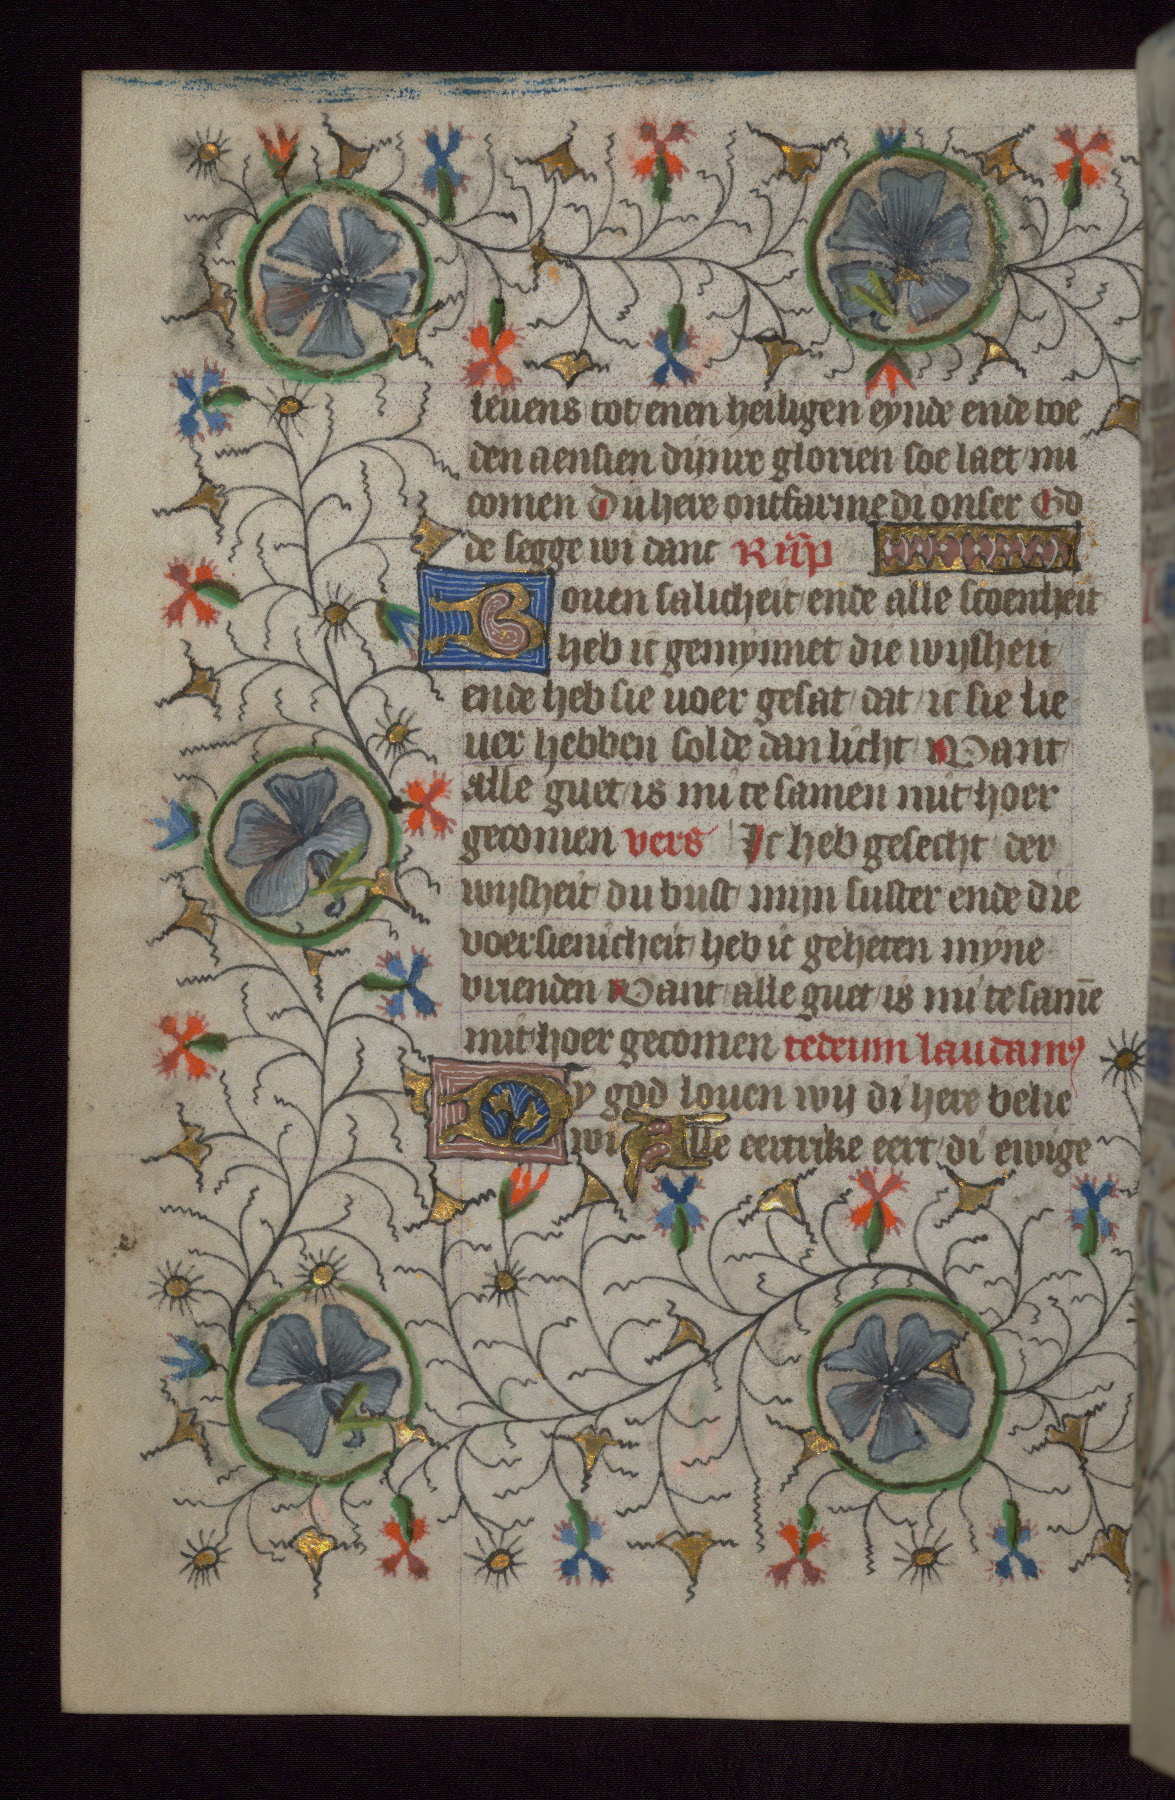 leuens tot enen heiligen eynde ende toe
den aensien dijnre glorien soe laet mi
comen Du here ontfarme di onser God
de segge wi danc
Bouen salicheit ende alle scoenheit
heb ic gemynnet die wijsheit
ende heb sie uoer gesat dat ic sie lie
uer hebben solde dan licht Want
alle guet is mi te samen mit hoer
gecomen vers Ic heb gesecht der
wijsheit du bust mijn suster ende die
voersienicheit heb ic geheten myne
vrienden Want alle guet is mi te samē
mit hoer gecomen tedeum laudamꝰ
Dy god louen wij di here belie
wi Alle eertrike eert di ewige